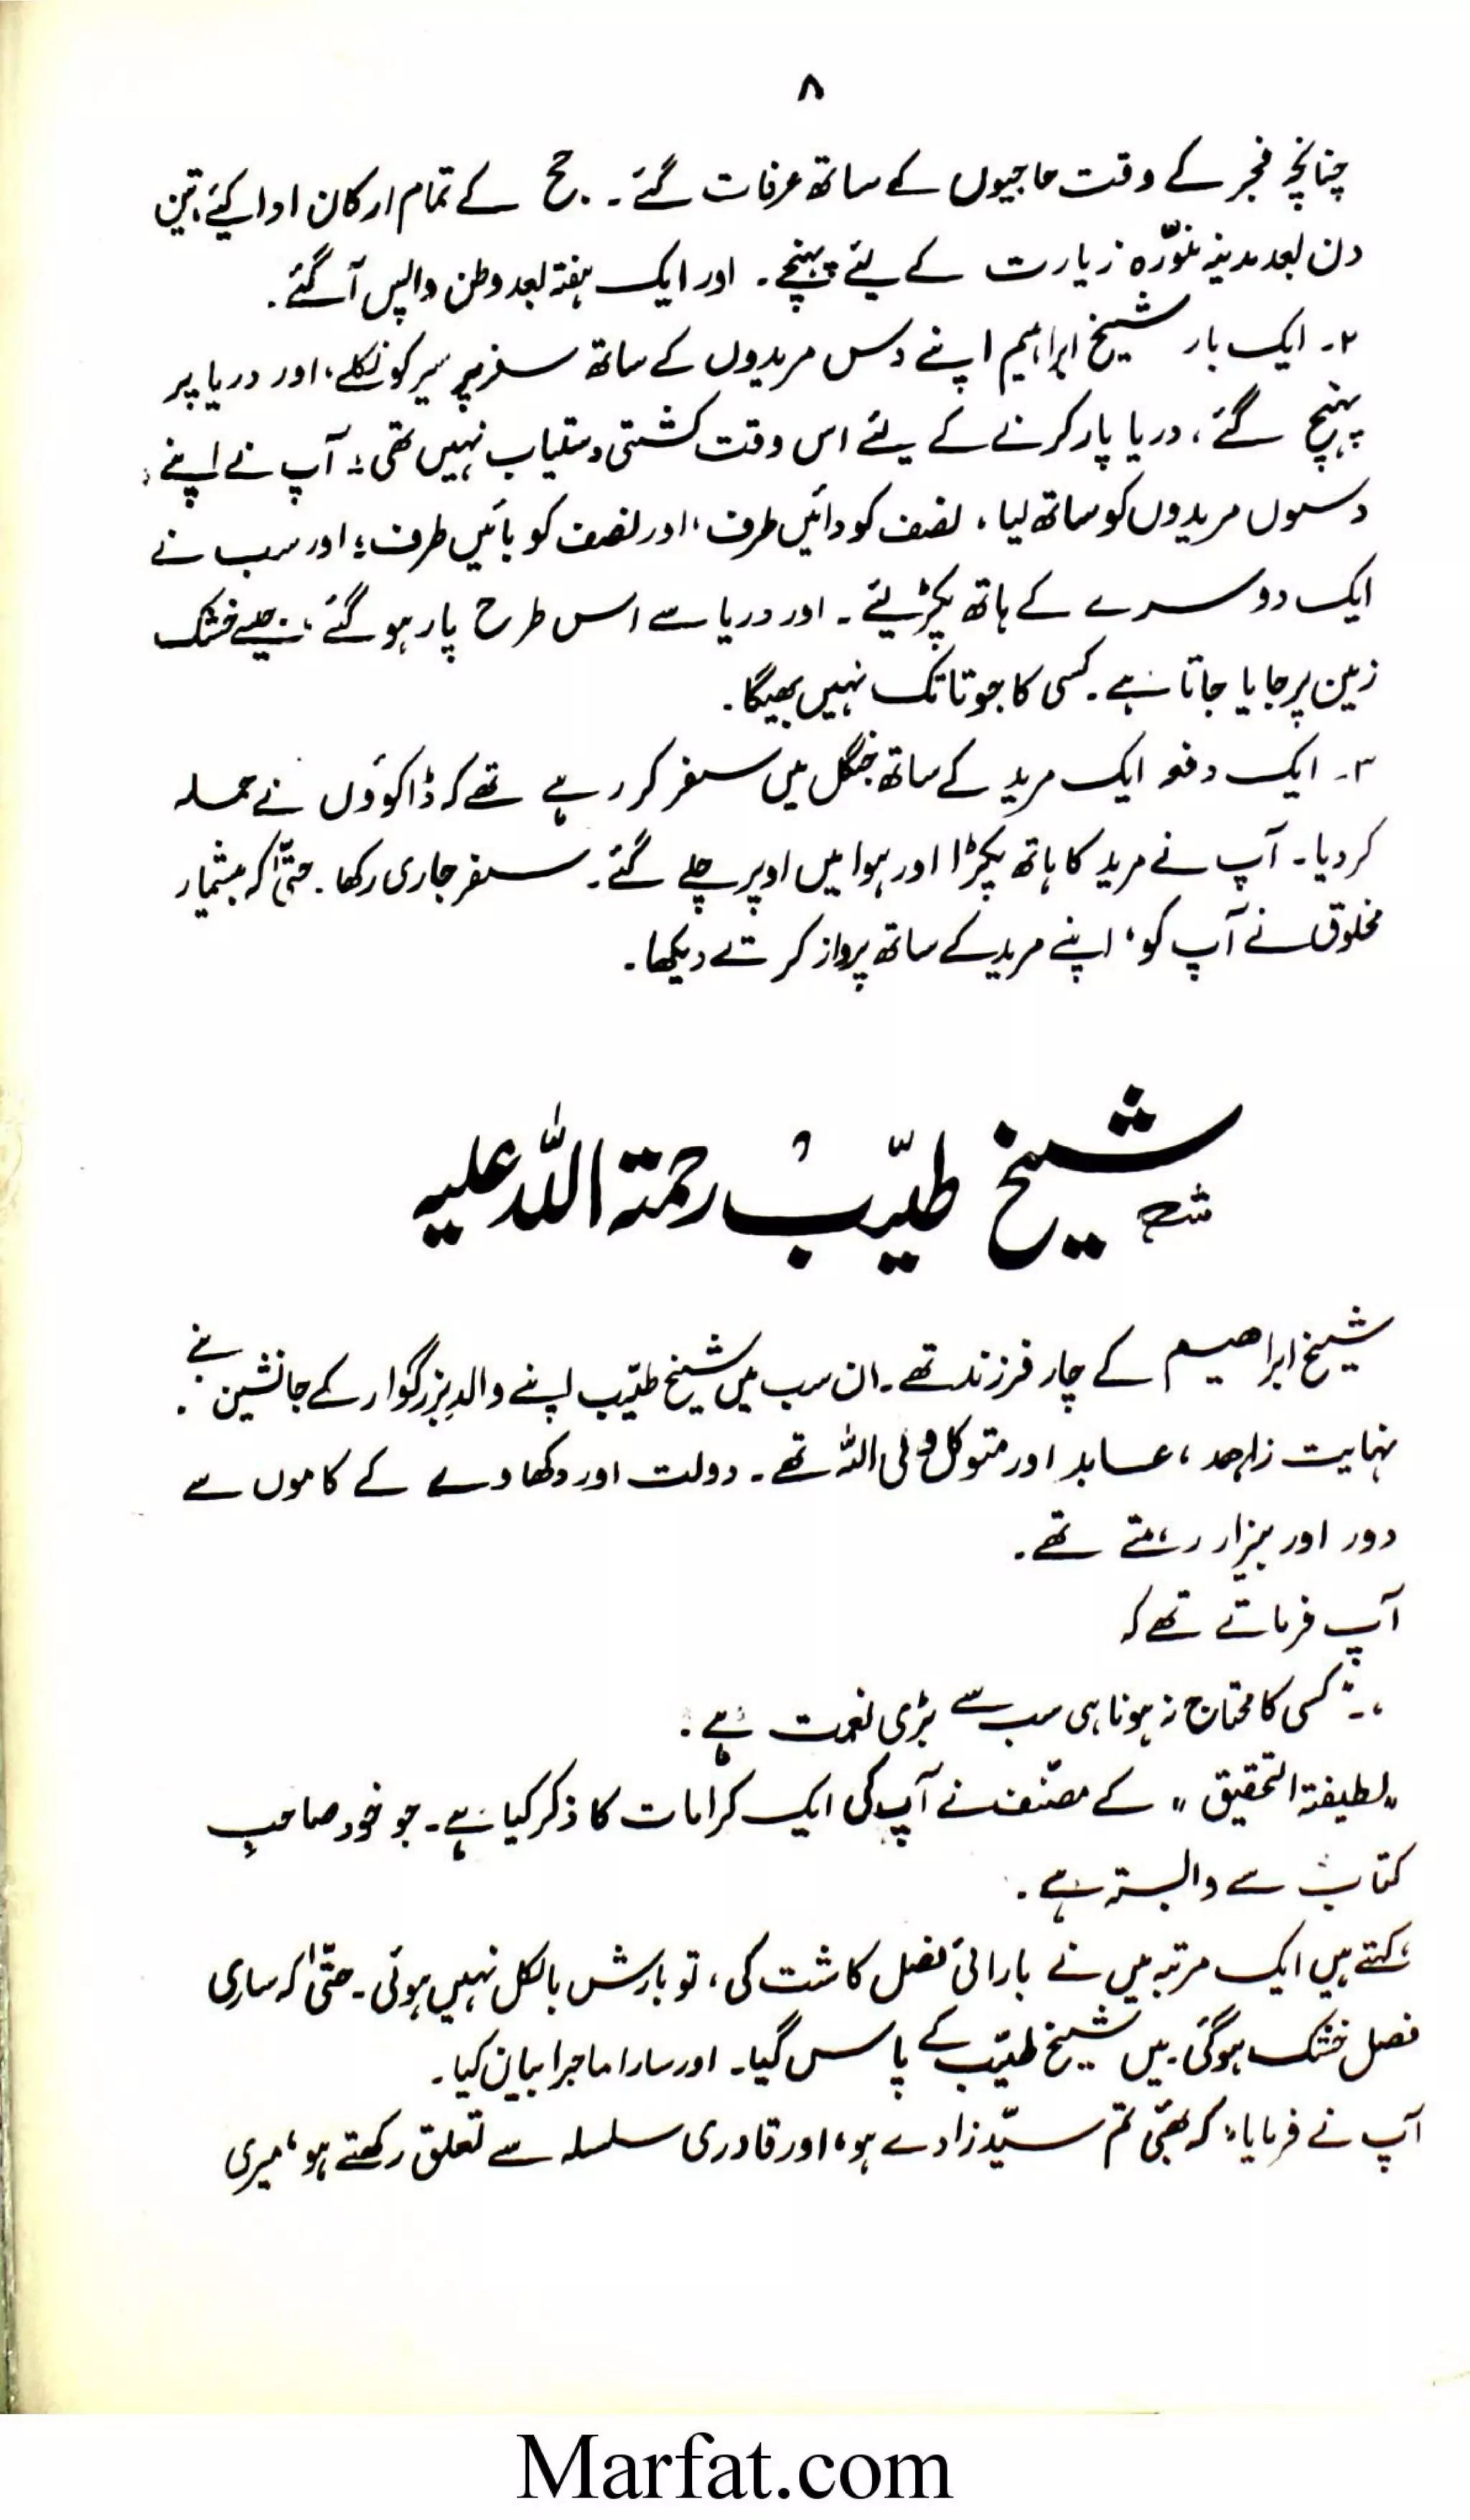 ۸
چنانچہ فجر کے وقت حاجیوں کے ساتھ عرفات گئے۔ حج کے تمام ارکان ادا کیئے، تین
دن بعد مدینہ منوّرہ زیارت کے لیئے پہنچے۔ اور ایک ہفتہ بعد وطن واپس آگئے۔
۲۔ ایک بار شیخ ابراہیم اپنے دس مریدوں کے ساتھ سفر پر سیر کو نکلے، اور دریا پر
پہنچ گئے، دریا پار کرنے کے لیئے اس وقت کشتی دستیاب نہیں تھی؛ آپ نے اپنے
دسوں مریدوں کو ساتھ لیا، نصف کو دائیں طرف، اور نصف کو بائیں طرف؛ اور سب نے
ایک دوسرے کے ہاتھ پکڑ لیئے۔ اور دریا سے اس طرح پار ہو گئے، جیسے خشک
زمین پر جایا جاتا ہے۔ کسی کا جوتا تک نہیں بھیگا۔
۳۔ ایک دفعہ ایک مرید کے ساتھ جنگل میں سفر کر رہے تھے کہ ڈاکوؤں نے حملہ
کر دیا۔ آپ نے مرید کا ہاتھ پکڑا اور ہوا میں اوپر چلے گئے۔ سفر جاری رکھا۔ حتیّٰ کہ بیشمار
مخلوق نے آپ کو، اپنے مرید کے ساتھ پرواز کرتے دیکھا۔
شیخ طیّبؒ رحمتہ اللہ علیہ
شیخ ابراھیم کے چار فرزند تھے۔ ان سب میں شیخ طیّب اپنے والدِ بزرگوار کے جانشین بنے۔
نہایت زاہد، عابد اور متوکل ولی اللہ تھے۔ دولت اور دکھاوے کے کاموں سے
دور اور بیزار رہتے تھے۔
آپ فرماتے تھے کہ
کسی کا محتاج نہ ہونا ہی سب سے بڑی نعمت ہے۔
"لطیفتہ التحقیق" کے مصنّف نے آپ کی ایک کرامات کا ذکر کیا ہے۔ جو خود صاحبِ
کتاب سے وابستہ ہے۔
کہتے ہیں ایک مرتبہ میں نے بارانی فصل کاشت کی، تو بارش بالکل نہیں ہوئی۔ حتیّٰ کہ ساری
فصل خشک ہوگئی۔ میں شیخ طیّب کے پاس گیا۔ اور سارا ماجرا بیان کیا۔
آپ نے فرمایا، کہ بھئی تم سیّد زادے ہو، اور قادری سلسلہ سے تعلق رکھتے ہو، میری
Marfat.com